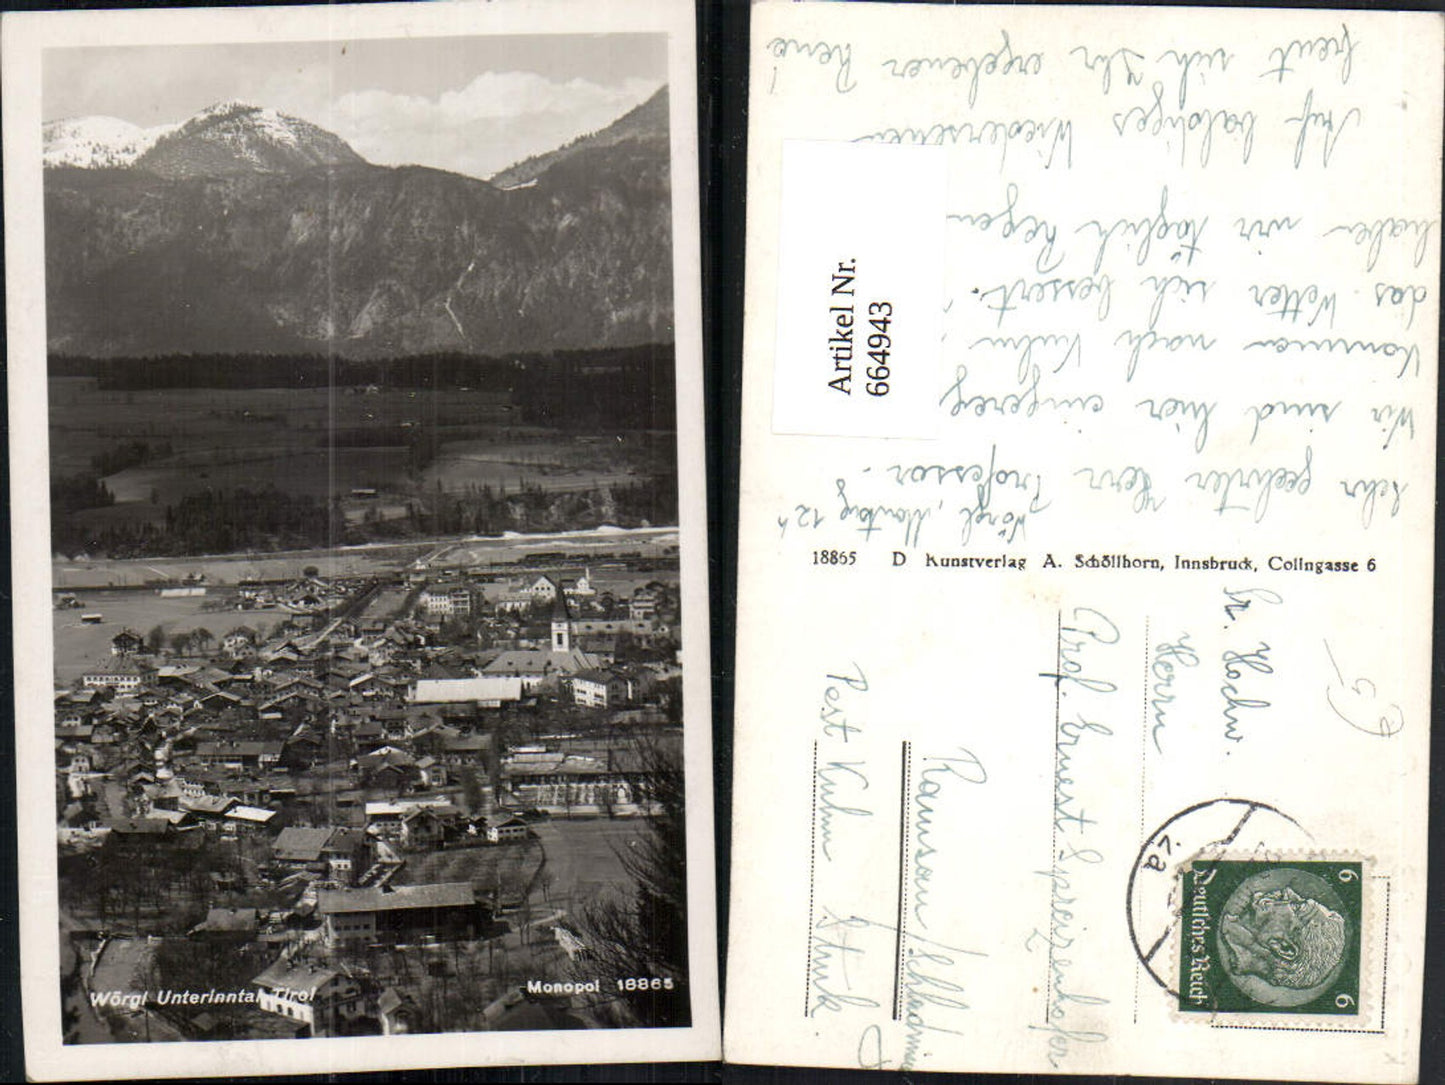 Wörgl Unterinntal Tirol
Monopol 18865
Artikel Nr.
664943
Wörgl, Montag 12 h
Sehr geehrter Herr Professor.
Wir sind hier eingereg
kommen nach Kulm,
das Wetter sich bessert.
haben wir täglich Regen
Auf baldiges Wiedersehen
freut sich Ihr ergebener René
18865 D Kunstverlag A. Schöllhorn, Innsbruck, Colingasse 6
Sr. Hochw.
Herrn
Prof. Ernest Spreizenhofer
Ramsau/Schladming
Post Kulm
Deutsches Reich
6
6